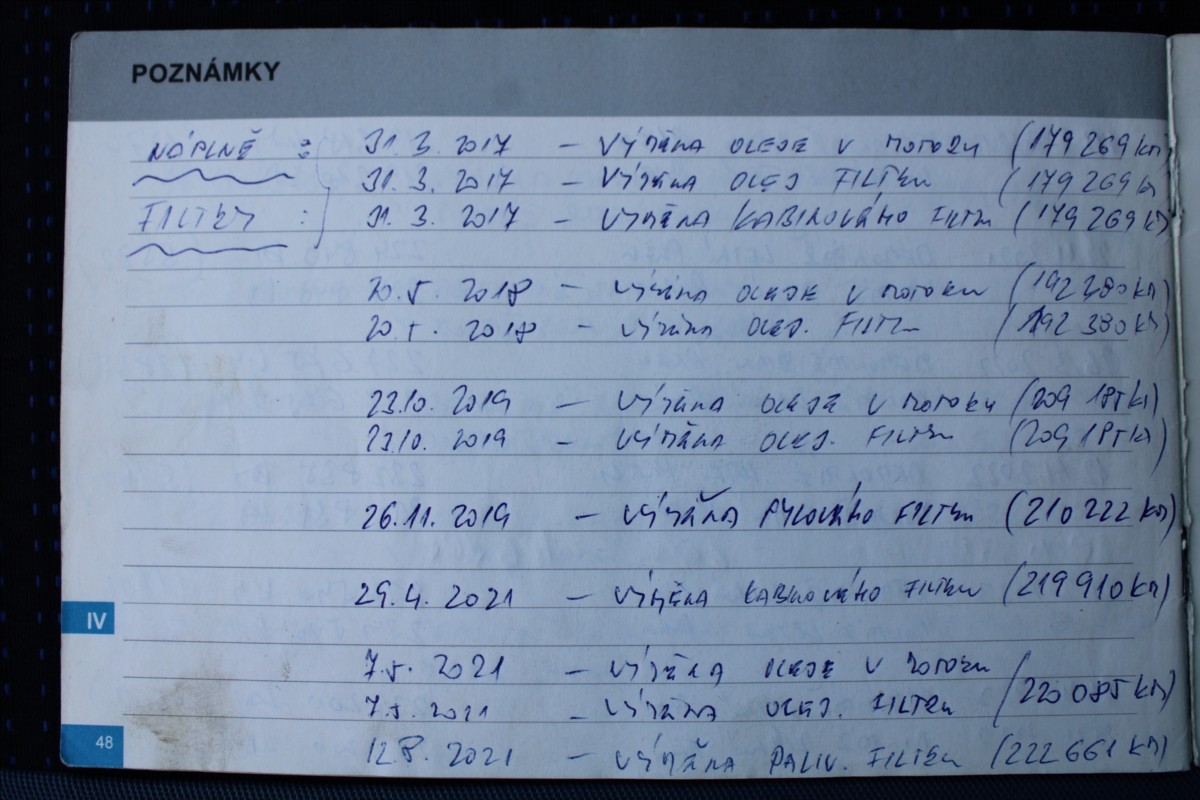 POZNÁMKY
NÁPLNĚ : 31.3. 2017 – VÝMĚNA OLEJE V MOTORU (179 269 km)
31.3. 2017 – VÝMĚNA OLEJ FILTRU (179 269 km)
FILTRY : 31.3. 2017 – VÝMĚNA KABINOVÉHO FILTRU (179 269 km)
20.5. 2018 – VÝMĚNA OLEJE V MOTORU (192 380 km)
20.5. 2018 – VÝMĚNA OLEJ. FILTRU (192 380 km)
23.10. 2019 – VÝMĚNA OLEJE V MOTORU (209 185 km)
23.10. 2019 – VÝMĚNA OLEJ. FILTRU (209 185 km)
26.11. 2019 – VÝMĚNA PYLOVÉHO FILTRU (210 222 km)
29.4. 2021 – VÝMĚNA KABINOVÉHO FILTRU (219 910 km)
7.5. 2021 – VÝMĚNA OLEJE V MOTORU
7.5. 2021 – VÝMĚNA OLEJ. FILTRU (220 085 km)
12.8. 2021 – VÝMĚNA PALIV. FILTRU (222 661 km)
IV
48